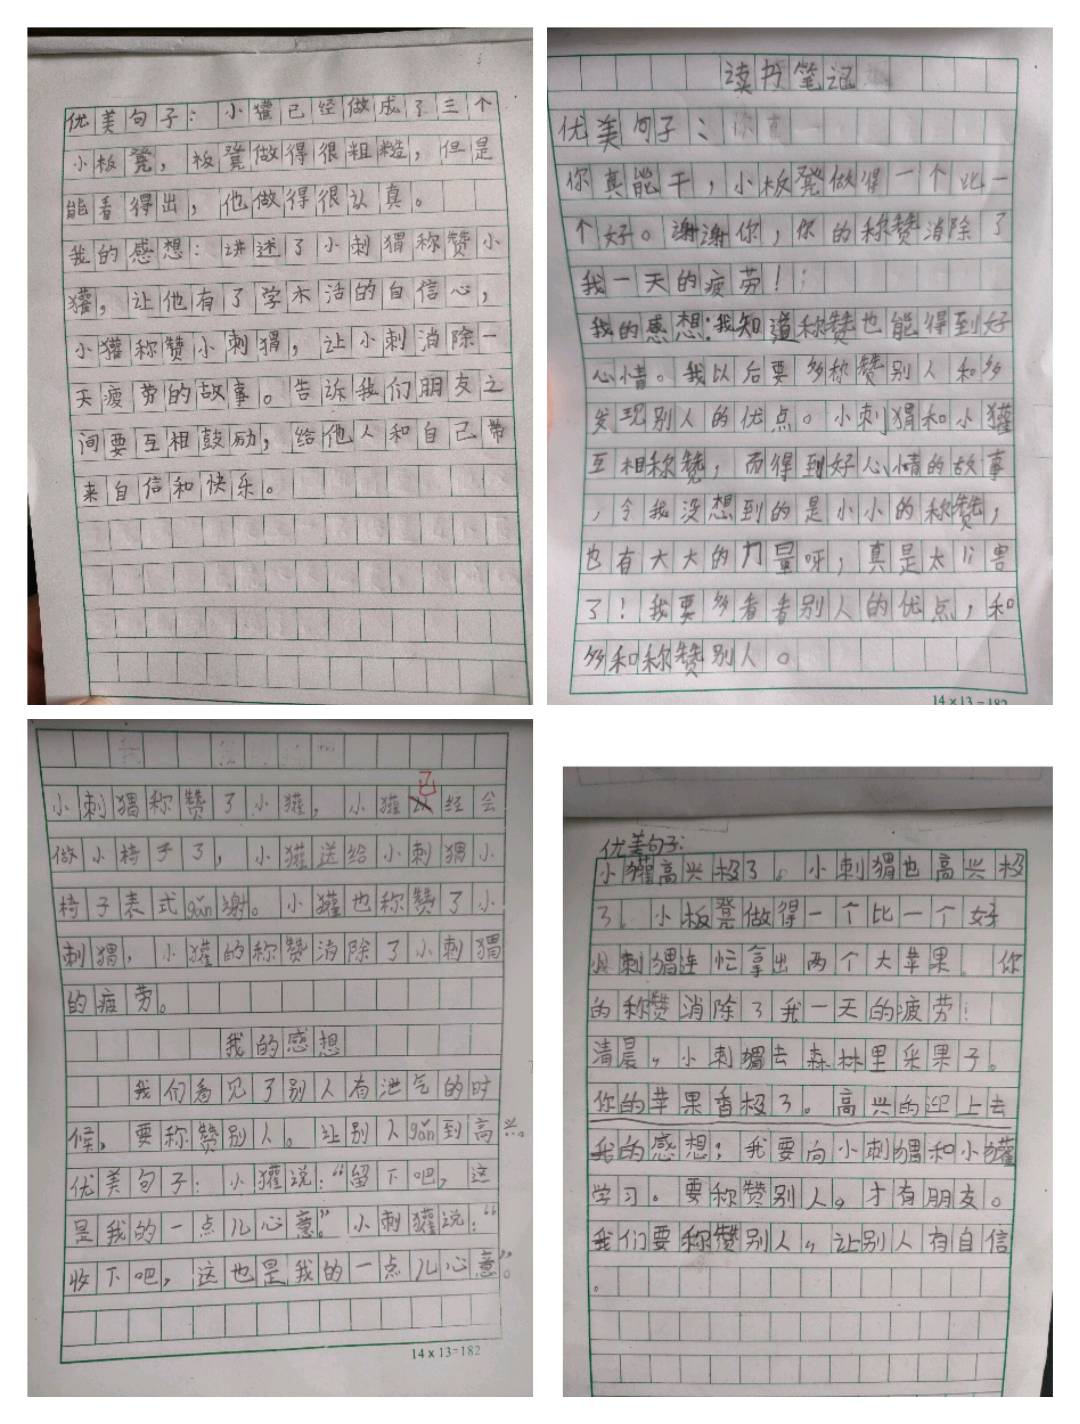 优美句子：小獾已经做成了三个
小板凳，板凳做得很粗糙，但是
能看得出，他做得很认真。
我的感想：讲述了小刺猬称赞小
獾，让他有了学木活的自信心，
小獾称赞小刺猬，让小刺消除一
天疲劳的故事。告诉我们朋友之
间要互相鼓励，给他人和自己带
来自信和快乐。
读书笔记
优美句子：
你真能干，小板凳做得一个比一
个好。谢谢你，你的称赞消除了
我一天的疲劳！
我的感想：我知道称赞也能得到好
心情。我以后要多称赞别人和多
发现别人的优点。小刺猬和小獾
互相称赞，而得到好心情的故事
，令我没想到的是小小的称赞，
也有大大的力量呀，真是太川害
了！我要多看看别人的优点，和
多和称赞别人。
14×13=182
小刺猬称赞了小獾，小獾已经会
做小椅子了，小獾送给小刺猬小
椅子表式gǎn谢。小獾也称赞了小
刺猬，小獾的称赞消除了小刺猬
的疲劳。
我的感想
我们看见了别人有泄气的时
候，要称赞别人。让别人gǎn到高兴。
优美句子：小獾说：“留下吧，这
是我的一点儿心意。”小刺獾说：“
收下吧，这也是我的一点儿心意”。
14×13=182
优美句子：
小獾高兴极了。小刺猬也高兴极
了。小板凳做得一个比一个好
小刺猬连忙拿出两个大苹果 你
的称赞消除了我一天的疲劳！
清晨，小刺猬去森林里采果子。
你的苹果香极了。高兴的迎上去
我的感想；我要向小刺猬和小獾
学习。要称赞别人，才有朋友。
我们要称赞别人，让别人有自信
。